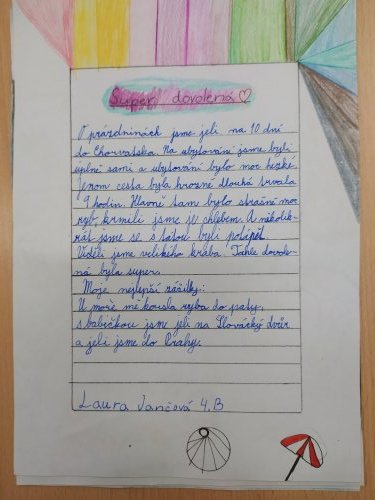 Super dovolená
O prázdninách jsme jeli na 10 dní
do Chorvatska. Na ubytování jsme byli
úplně sami a ubytování bylo moc hezké.
Jenom cesta byla hrozně dlouhá trvala
9 hodin. Hlavně tam bylo strašně moc
ryb, krmili jsme je chlebem. A několik-
rát jsme se s tátou byli potápět.
Viděli jsme velikého kraba. Tahle dovole-
ná byla super.
Moje nejlepší zážitky:
U moře mě kousla ryba do paty,
s babičkou jsm jeli na Slovácký dvůr
a jeli jsme do Prahy.
Laura Jančová 4.B